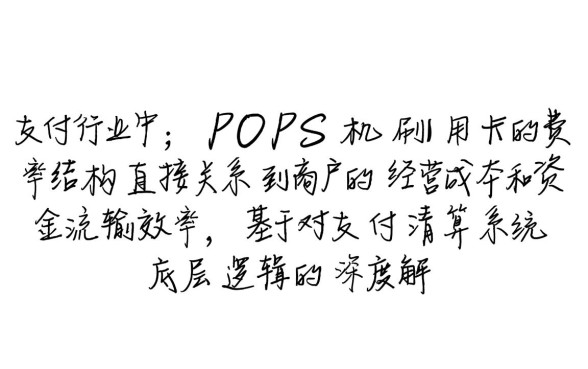 支付行业中；POPS机刷用卡的费
率结构直接关系到商户的经营成本和资
金流输效率，基于对支付清算系统
底层逻辑的深度解